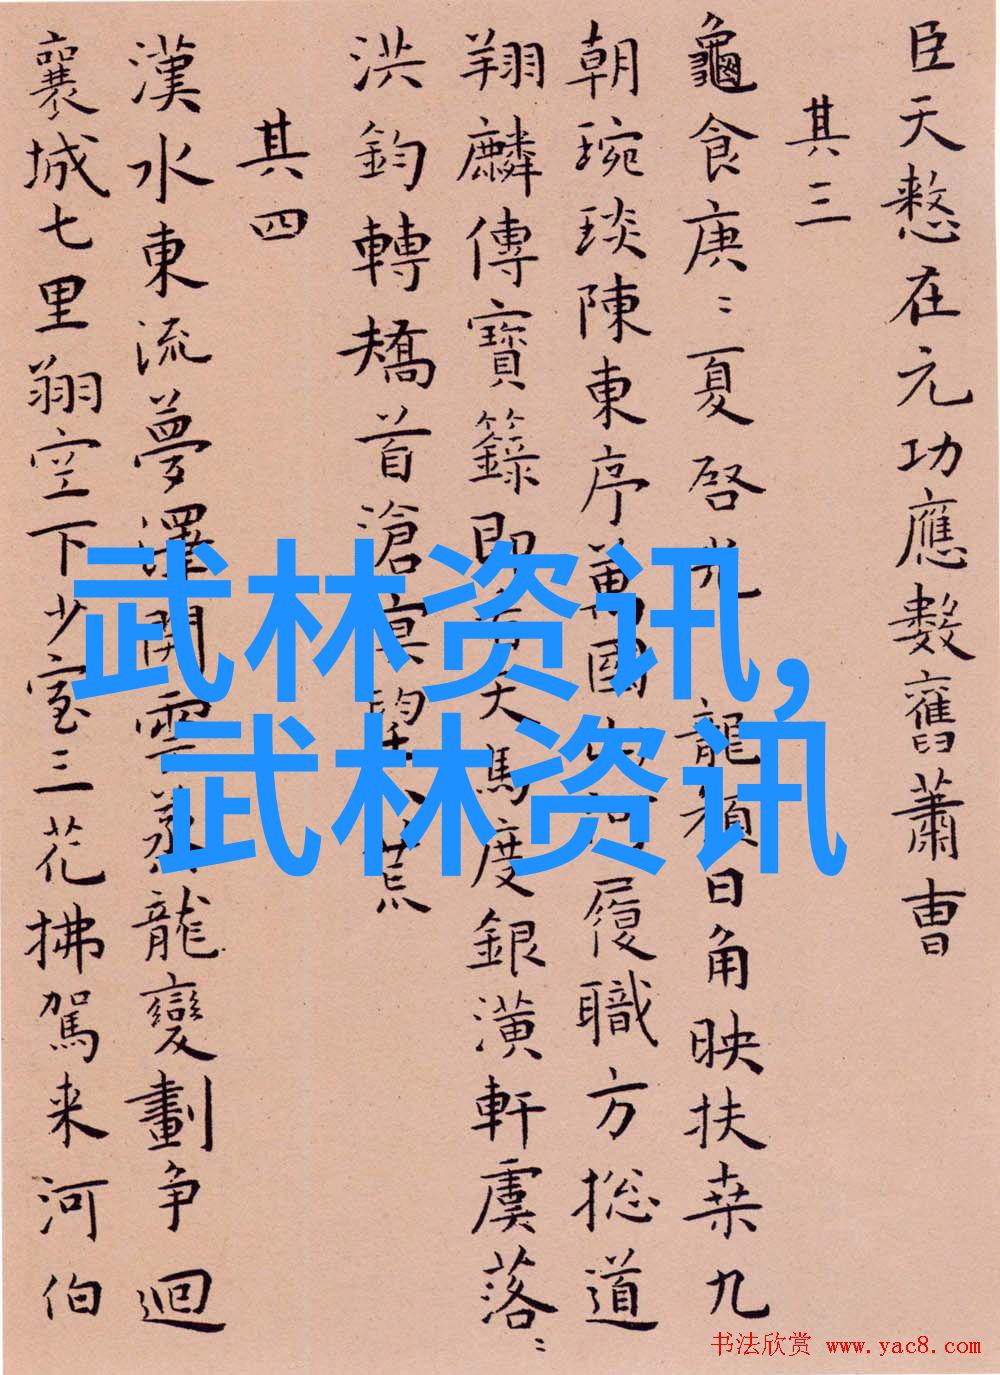 臣天憖在元功應數舊蕭曹
其三
龜食庚〻夏啓光龍顏日角映扶桒九
朝琬琰陳東序萬國履職方摠道
翔麟傳寶籙即天馬度銀潢軒虞落〻
洪鈞轉矯首滄冥荒
其四
漢水東流夢澤開雲蒸龍變劃争迴
襄城七里翔空下少室三花拂駕来河伯
武林资讯,
武林资讯
书法欣赏 www.yac8.com